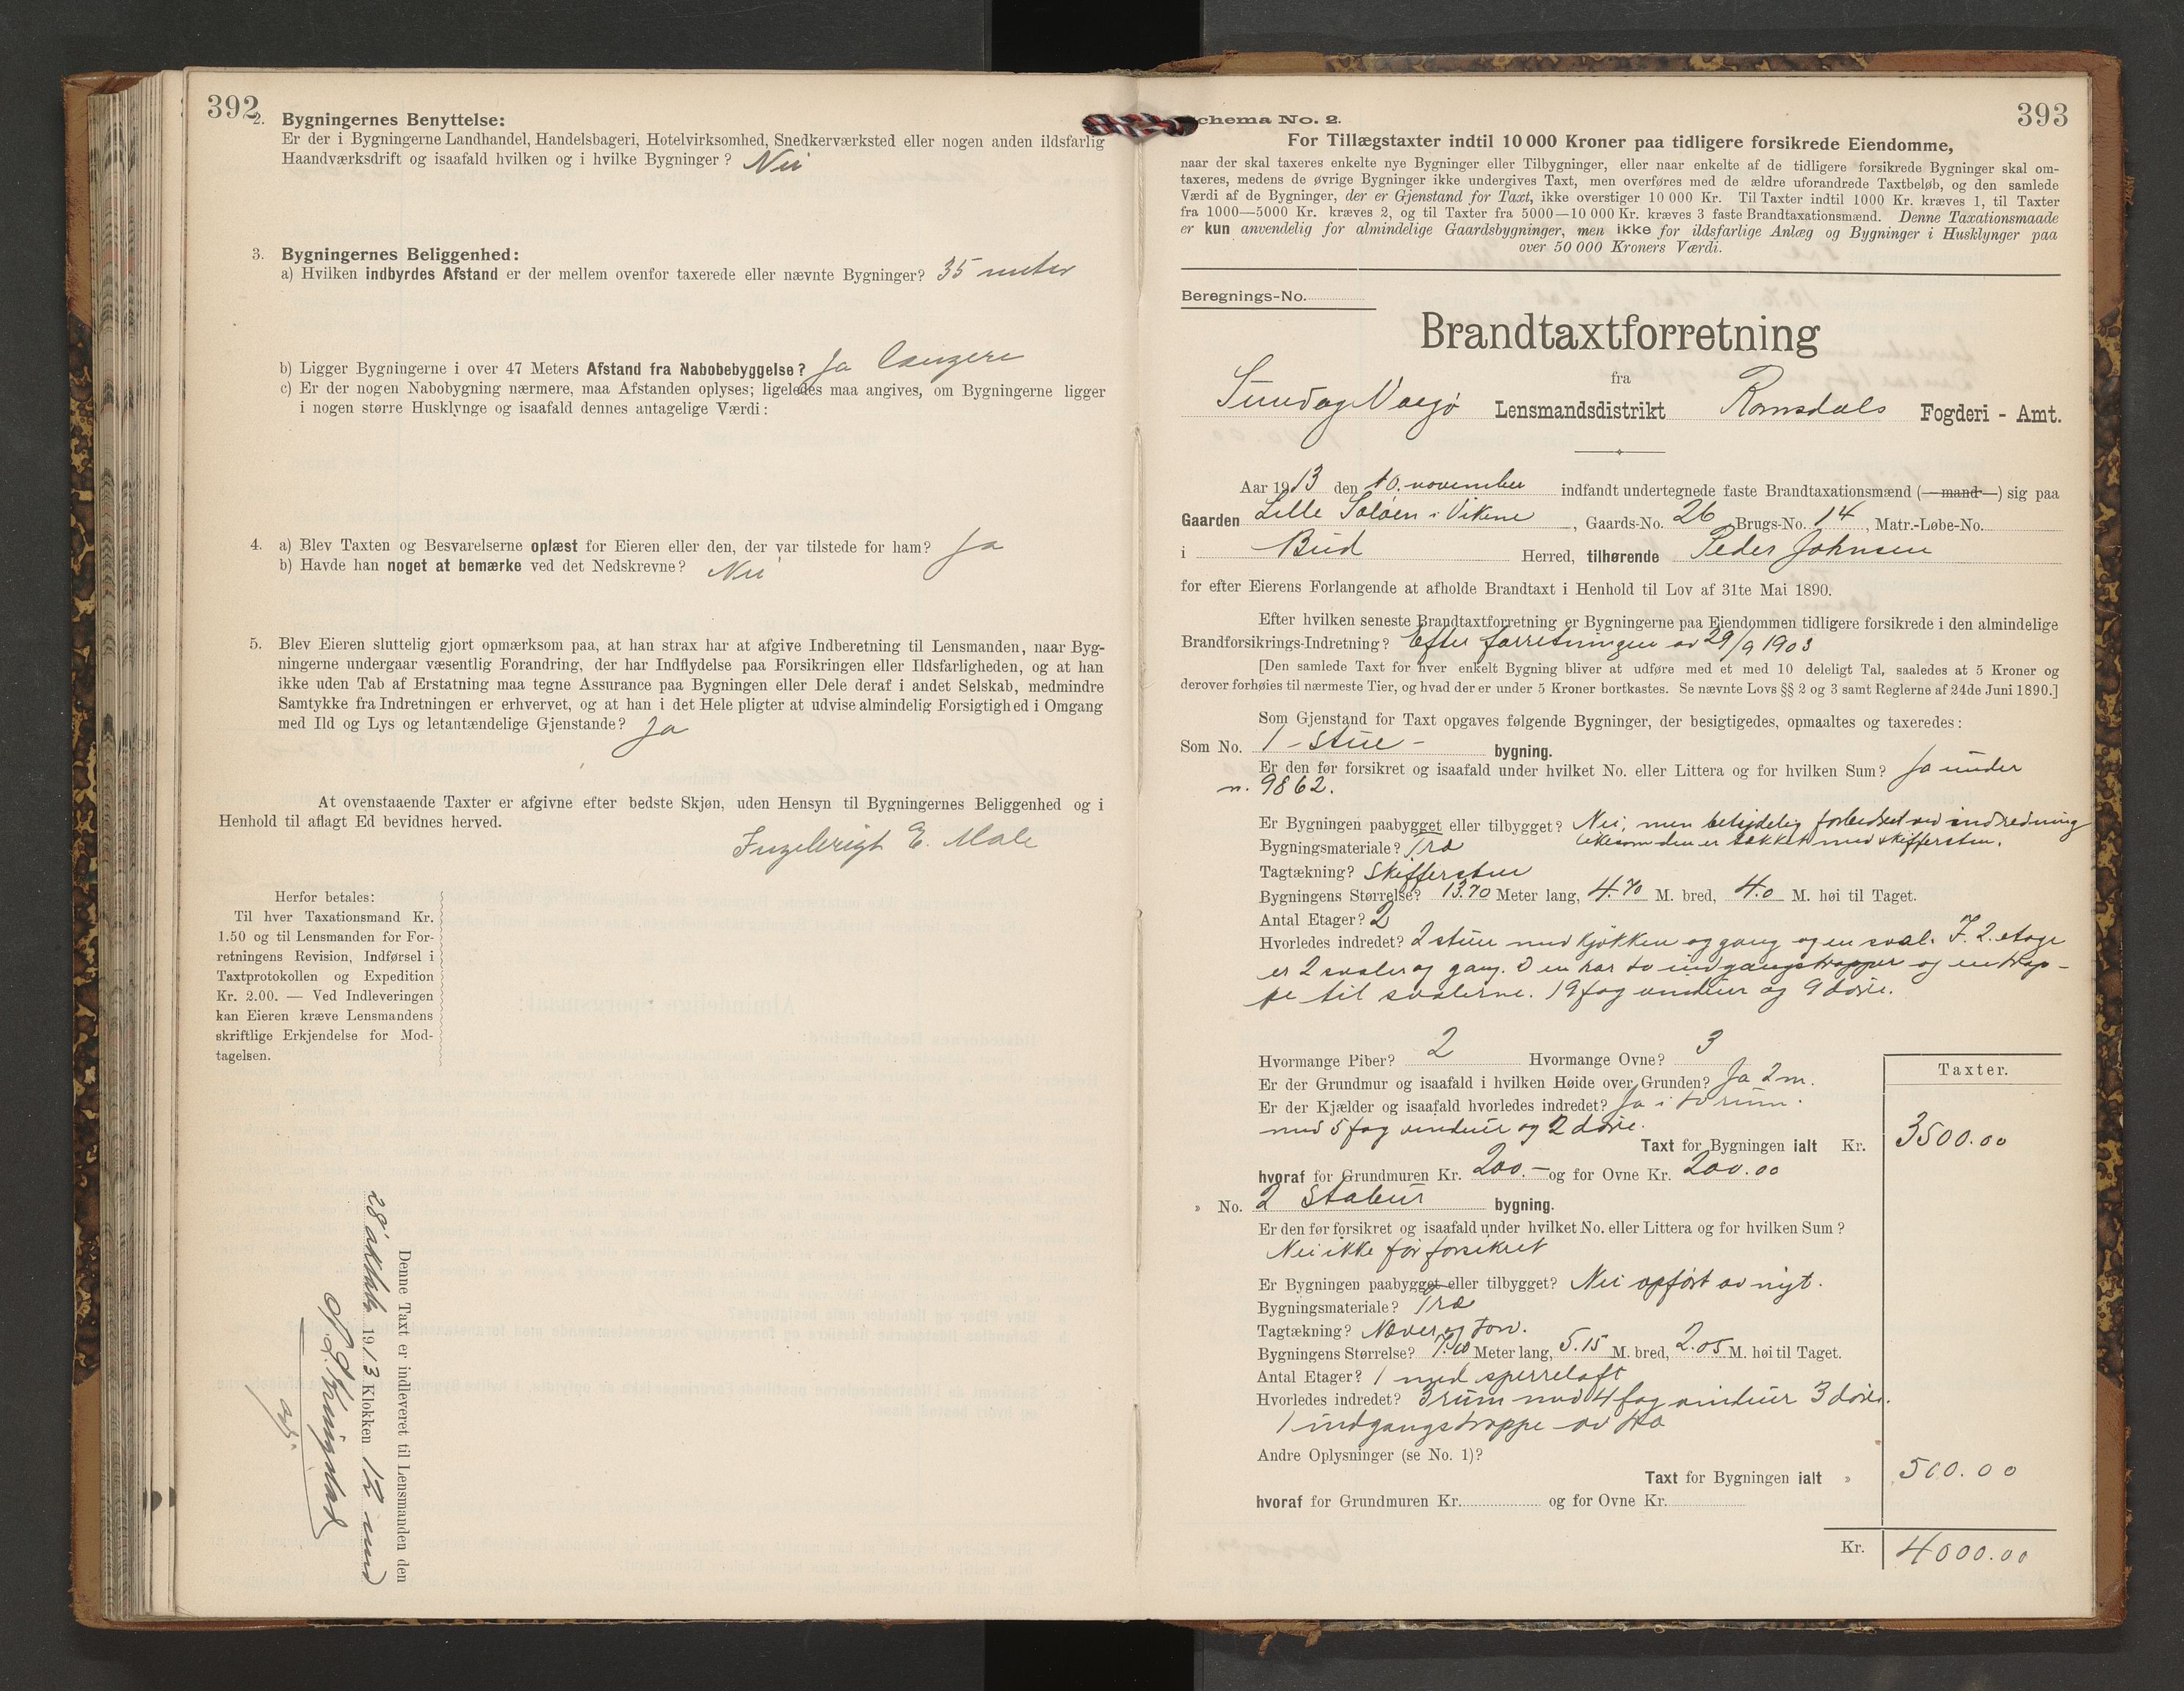 392
2. Bygningernes Benyttelse:
Er der i Bygningerne Landhandel, Handelsbageri, Hotelvirksomhed, Snedkerværksted eller nogen anden ildsfarlig
Haandværksdrift og isaafald hvilken og i hvilke Bygninger? Nei
3. Bygningernes Beliggenhed:
a) Hvilken indbyrdes Afstand er der mellem ovenfor taxerede eller nævnte Bygninger? 35 meter
b) Ligger Bygningerne i over 47 Meters Afstand fra Nabobebyggelse? Ja længere
c) Er der nogen Nabobygning nærmere, maa Afstanden oplyses; ligeledes maa angives, om Bygningerne ligger
i nogen større Husklynge og isaafald dennes antagelige Værdi:
4. a) Blev Taxten og Besvarelserne oplæst for Eieren eller den, der var tilstede for ham? Ja
b) Havde han noget at bemærke ved det Nedskrevne? Nei
5. Blev Eieren sluttelig gjort opmærksom paa, at han strax har at afgive Indberetning til Lensmanden, naar Byg-
ningerne undergaar væsentlig Forandring, der har Indflydelse paa Forsikringen eller Ildsfarligheden, og at han
ikke uden Tab af Erstatning maa tegne Assurance paa Bygningen eller Dele deraf i andet Selskab, medmindre
Samtykke fra Indretningen er erhvervet, og at han i det Hele pligter at udvise almindelig Forsigtighed i Omgang
med Ild og Lys og letantændelige Gjenstande? Ja
At ovenstaaende Taxter er afgivne efter bedste Skjøn, uden Hensyn til Bygningernes Beliggenhed og i
Henhold til aflagt Ed bevidnes herved.
Ingebrigt E. Male
Herfor betales:
Til hver Taxationsmand Kr.
1.50 og til Lensmanden for For-
retningens Revision, Indførsel i
Taxtprotokollen og Expedition
Kr. 2.00. — Ved Indleveringen
kan Eieren kræve Lensmandens
skriftlige Erkjendelse for Mod-
tagelsen.
Denne Taxt er indleveret til Lensmanden den
28 oktober 1913 Klokken 12 mid
393
Schema No. 2.
For Tillægstaxter indtil 10 000 Kroner paa tidligere forsikrede Eiendomme,
naar der skal taxeres enkelte nye Bygninger eller Tilbygninger, eller naar enkelte af de tidligere forsikrede Bygninger skal om-
taxeres, medens de øvrige Bygninger ikke undergives Taxt, men overføres med de ældre uforandrede Taxtbeløb, og den samlede
Værdi af de Bygninger, der er Gjenstand for Taxt, ikke overstiger 10 000 Kr. Til Taxter indtil 1000 Kr. kræves 1, til Taxter
fra 1000—5000 Kr. kræves 2, og til Taxter fra 5000—10 000 Kr. kræves 3 faste Brandtaxationsmænd. Denne Taxationsmaade
er kun anvendelig for almindelige Gaardsbygninger, men ikke for ildsfarlige Anlæg og Bygninger i Husklynger paa
over 50 000 Kroners Værdi.
Beregnings-No.
Brandtaxtforretning
fra
Lensmandsdistrikt Romsdals Fogderi - Amt.
Aar 1913 den 10. november indfandt undertegnede faste Brandtaxationsmænd (—mand—) sig paa
Gaarden Lille i Vikene, Gaards-No. 26 Brugs-No. 14, Matr.-Løbe-No.
i Bud Herred, tilhørende Peder Johnsen
for efter Eierens Forlangende at afholde Brandtaxt i Henhold til Lov af 31te Mai 1890.
Efter hvilken seneste Brandtaxtforretning er Bygningerne paa Eiendommen tidligere forsikrede i den almindelige
Brandforsikrings-Indretning? Efter forretningen av 29/9 1903
[Den samlede Taxt for hver enkelt Bygning bliver at udføre med et med 10 deleligt Tal, saaledes at 5 Kroner og
derover forhøies til nærmeste Tier, og hvad der er under 5 Kroner bortkastes. Se nævnte Lovs §§ 2 og 3 samt Reglerne af 24de Juni 1890.]
Som Gjenstand for Taxt opgaves følgende Bygninger, der besigtigedes, opmaaltes og taxeredes:
Som No. 1 - stue - bygning.
Er den før forsikret og isaafald under hvilket No. eller Littera og for hvilken Sum? Ja under
n. 9862.
Er Bygningen paabygget eller tilbygget? Nei, men betydelig forbedret ved indredning
likesom den er tækket med skiffersten.
Bygningsmateriale? Træ
Tagtækning? Skiffersten
Bygningens Størrelse? 13.70 Meter lang, 4.70 M. bred, 4.0 M. høi til Taget.
Antal Etager? 2
Hvorledes indredet? 2 stuer med kjøkken og gang og en sval. I 2. etage
er 2 svaler og gang. Den har to indgangstrapper og en trap-
pe til svalerne. 19 fag vinduer og 9 døre.
Hvormange Piber? 2 Hvormange Ovne? 3
Er der Grundmur og isaafald i hvilken Høide over Grunden? Ja 2 m.
Er der Kjælder og isaafald hvorledes indredet? Ja i to rum
med 5 fag vinduer og 2 døre.
Taxter.
Taxt for Bygningen ialt Kr. 3500.00
hvoraf for Grundmuren Kr. 200.- og for Ovne Kr. 200.00
» No. 2 Stabur bygning.
Er den før forsikret og isaafald under hvilket No. eller Littera og for hvilken Sum?
Nei ikke før forsikret
Er Bygningen paabygget eller tilbygget? Nei opført av nyt.
Bygningsmateriale? Træ
Tagtækning? Næver og torv.
Bygningens Størrelse? Meter lang, 5.15 M. bred, 2.05 M. høi til Taget.
Antal Etager? 1 med sperreloft
Hvorledes indredet? 3 rum med 4 fag vinduer 3 døre.
1 indgangstrappe av træ
Andre Oplysninger (se No. 1)?
Taxt for Bygningen ialt » 500.00
hvoraf for Grundmuren Kr. og for Ovne Kr.
Kr. 4000.00